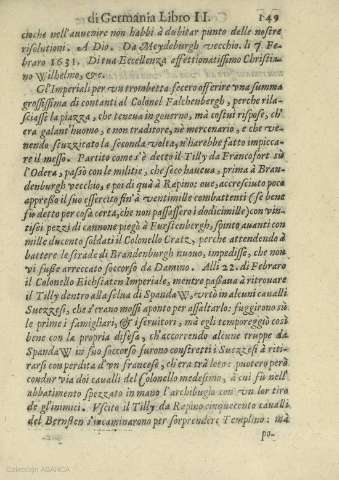 di Germania Libro II. 149
cioche nell'auuenire non habbi à dubitar punto delle nostre
risolutioni. A Dio. Da Meydeburgh vecchio. li 7 Fe-
braro 1631. Di tua Eccellenza affettionatissimo Christia-
no Wilhelmo, &c.
Gl'Imperiali per vn trombetta fecero offerire vna summa
grossissima di contanti al Colonel Falchenbergh, perche rila-
sciasse la piazza, che teneua in gouerno, ma costui rispose, ch'
era galant'huomo, e non traditore, nè mercenario, e che ve-
nendo stuzzicato la seconda volta, n'harebbe fatto impicca-
re il messo. Partito come s'è detto il Tilly da Francofort sù
l'Odera, passò con le militie, che seco haueua, prima à Bran-
denburgh vecchio, e poi di quà à Rapino; oue, accresciuto poca
appresso il suo essercito fin'à ventimille combattenti (se bene
fu detto per cosa certa, che non passassero i dodicimille) con vin-
tisei pezzi di cannone piegò à Furstenbergh, spinto auanti con
mille ducento soldati il Colonello Cratz, perche attendendo à
battere le strade di Brandenburgh nuouo, impedisse, che non
vi fusse arreccato soccorso da Damino. Alli 22. di Febraro
il Colonello Eichstaten Imperiale, mentre passaua à ritrouare
il Tilly dentro alla selua di SpandaW, vrtò in alcuni caualli
Suezzesi, che s'erano messi aponto per assaltarlo: fuggirono sù
le prime i famigliari, & i seruitori, mà egli temporeggiò così
bene con la propria difesa, ch'accorrendo alcune truppe da
SpandaW in suo soccorso furono constretti i Suezzesi à riti-
rarsi con perdita d'vn francese, ch'era trà loro: puotero però
condur via doi caualli del Colonello medesimo, à cui fù nell'
abbattimento spezzato in mano l'archibugio con vn lor tiro
de gl'inimici. Vscito il Tilly da Rapino cinquecento caualli
del Bernsten s'incaminarono per sorprendere Templino; mà
po-
Colección ABANCA